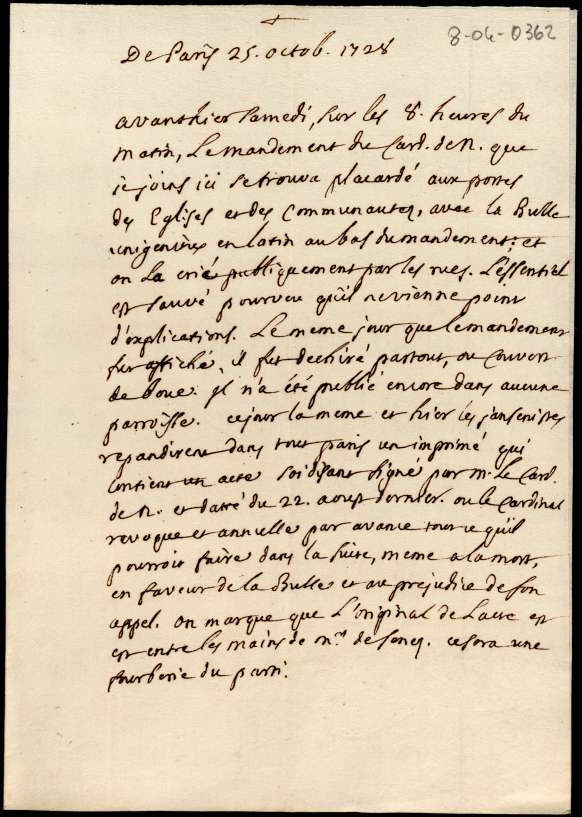 8-04-0362
De Paris 25. octob. 1728
avanthier samedi, sur les 8. heures du
matin, Le mandement du Card. de N. que
je joins ici se trouva placardé aux portes
des Eglises et des Communautez, avec la Bulle
unigenitus en latin au bas du mandement; et
on La crié publiquement par les rues. L'essentiel
est sauvé pourveu qu'il ne vienne point
d'explications. Le meme jour que le mandement
fut affiché, il fut dechiré partout, ou couvert
de boue. Il n'a été publié encore dans aucune
parroisse. ce jour la meme et hier les jansenistes
repandirent dans tout paris un imprimé qui
contient un acte soi disant signé par M. Le Card.
de N. et datté du 22. aoust dernier. ou le Cardinal
revoque et annulle par avance tout ce qu'il
pourroit faire dans la suite, meme a la mort,
en faveur de la Bulle et au prejudice de son
appel. on marque que L'original de L'acte est
est entre les mains de Mr. de Senez. ce sera une
fourberie du parti.